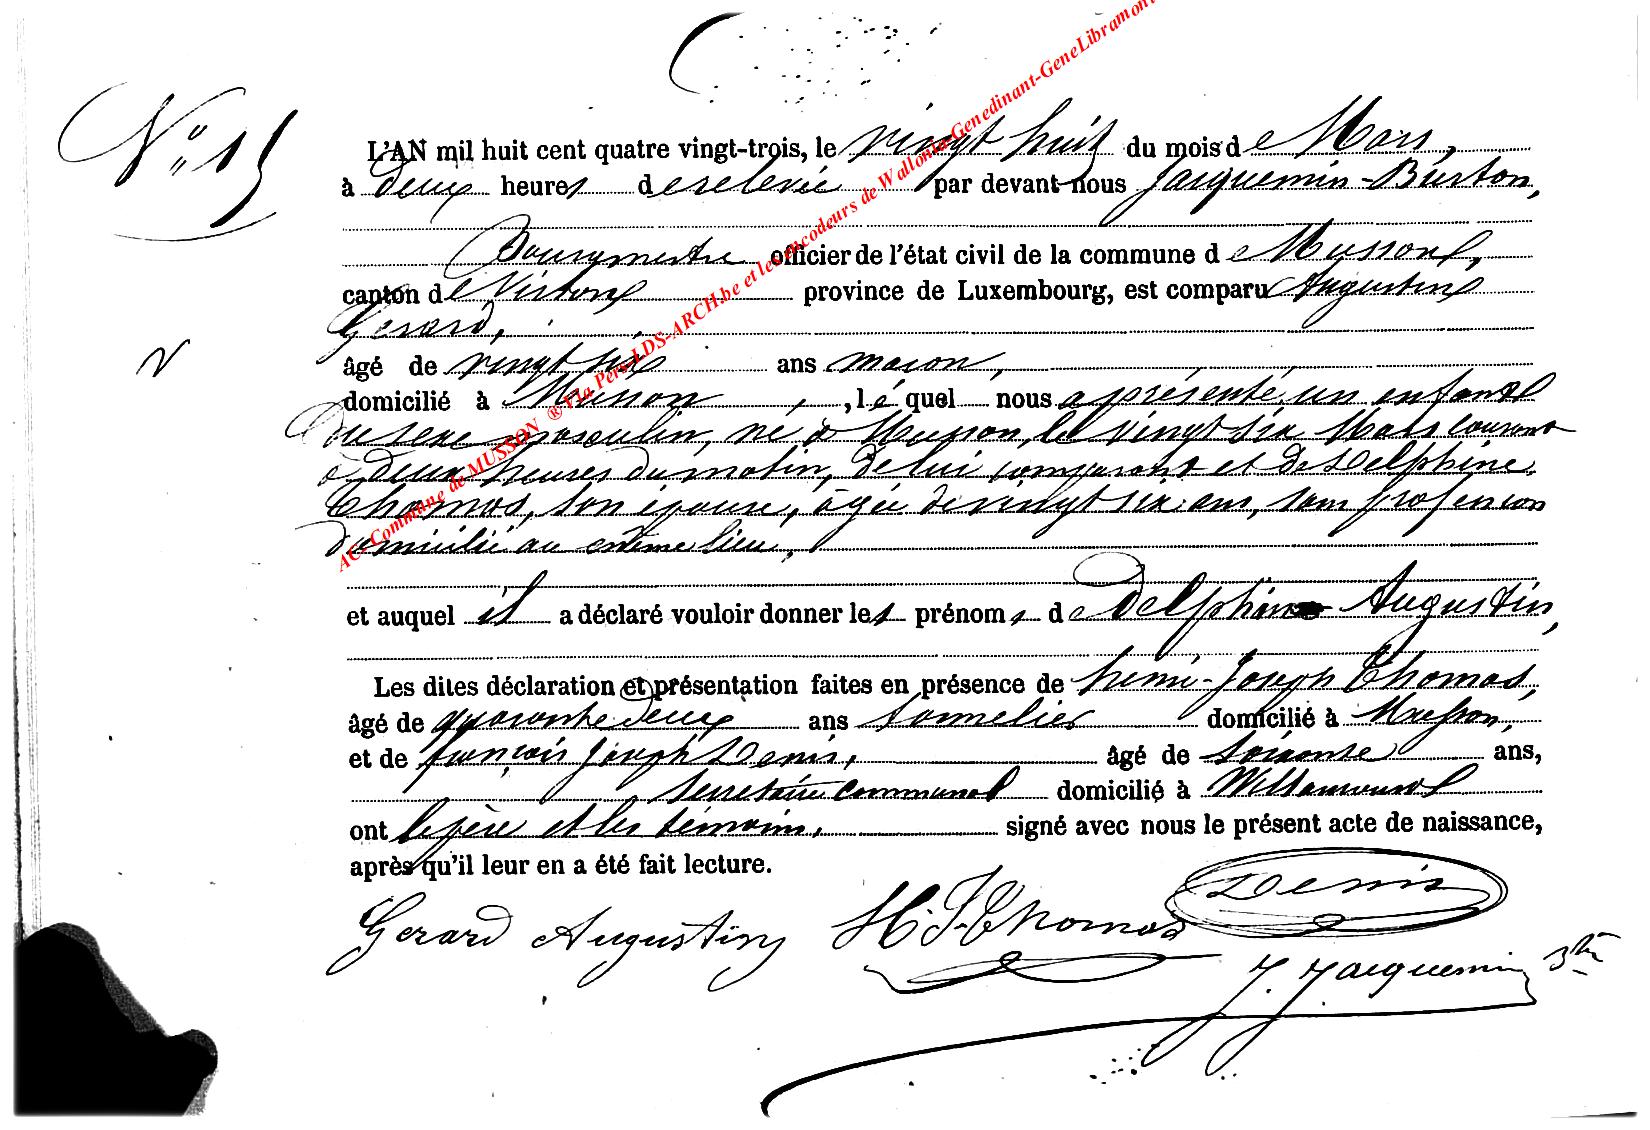 N° 15
L'AN mil huit cent quatre vingt-trois, le vingt huit du mois de Mars,
à deux heures de relevée par devant nous Jacquemin-Burton,
Bourgmestre officier de l'état civil de la commune de Musson,
canton de Virton province de Luxembourg, est comparu Augustin
Gerard,
âgé de vingt six ans macon,
domicilié à Musson, le quel nous a présenté un enfant
du sexe masculin, né à Musson, le vingt six Mars courant
à deux heures du matin, de lui comparant et de Delphine
Thomas, son épouse, âgée de vingt six ans, sans profession
domicilié au même lieu,
et auquel il a déclaré vouloir donner les prénoms de Delphin Augustin,
Les dites déclaration et présentation faites en présence de henri-Joseph Thomas,
âgé de quarante deux ans tonnelier domicilié à Musson,
et de françois Joseph Denis, âgé de soixante ans,
secretaire communal domicilié à Willancourt
ont le père et les témoins, signé avec nous le présent acte de naissance,
après qu'il leur en a été fait lecture.
Gerard Augustin H. J. Thomas Denis
J. Jacquemin Btn
AC-Commune de MUSSON ® Via Pers-LDS-ARCH.be et les encodeurs de Wallonia-Genedinant-GeneLibramont